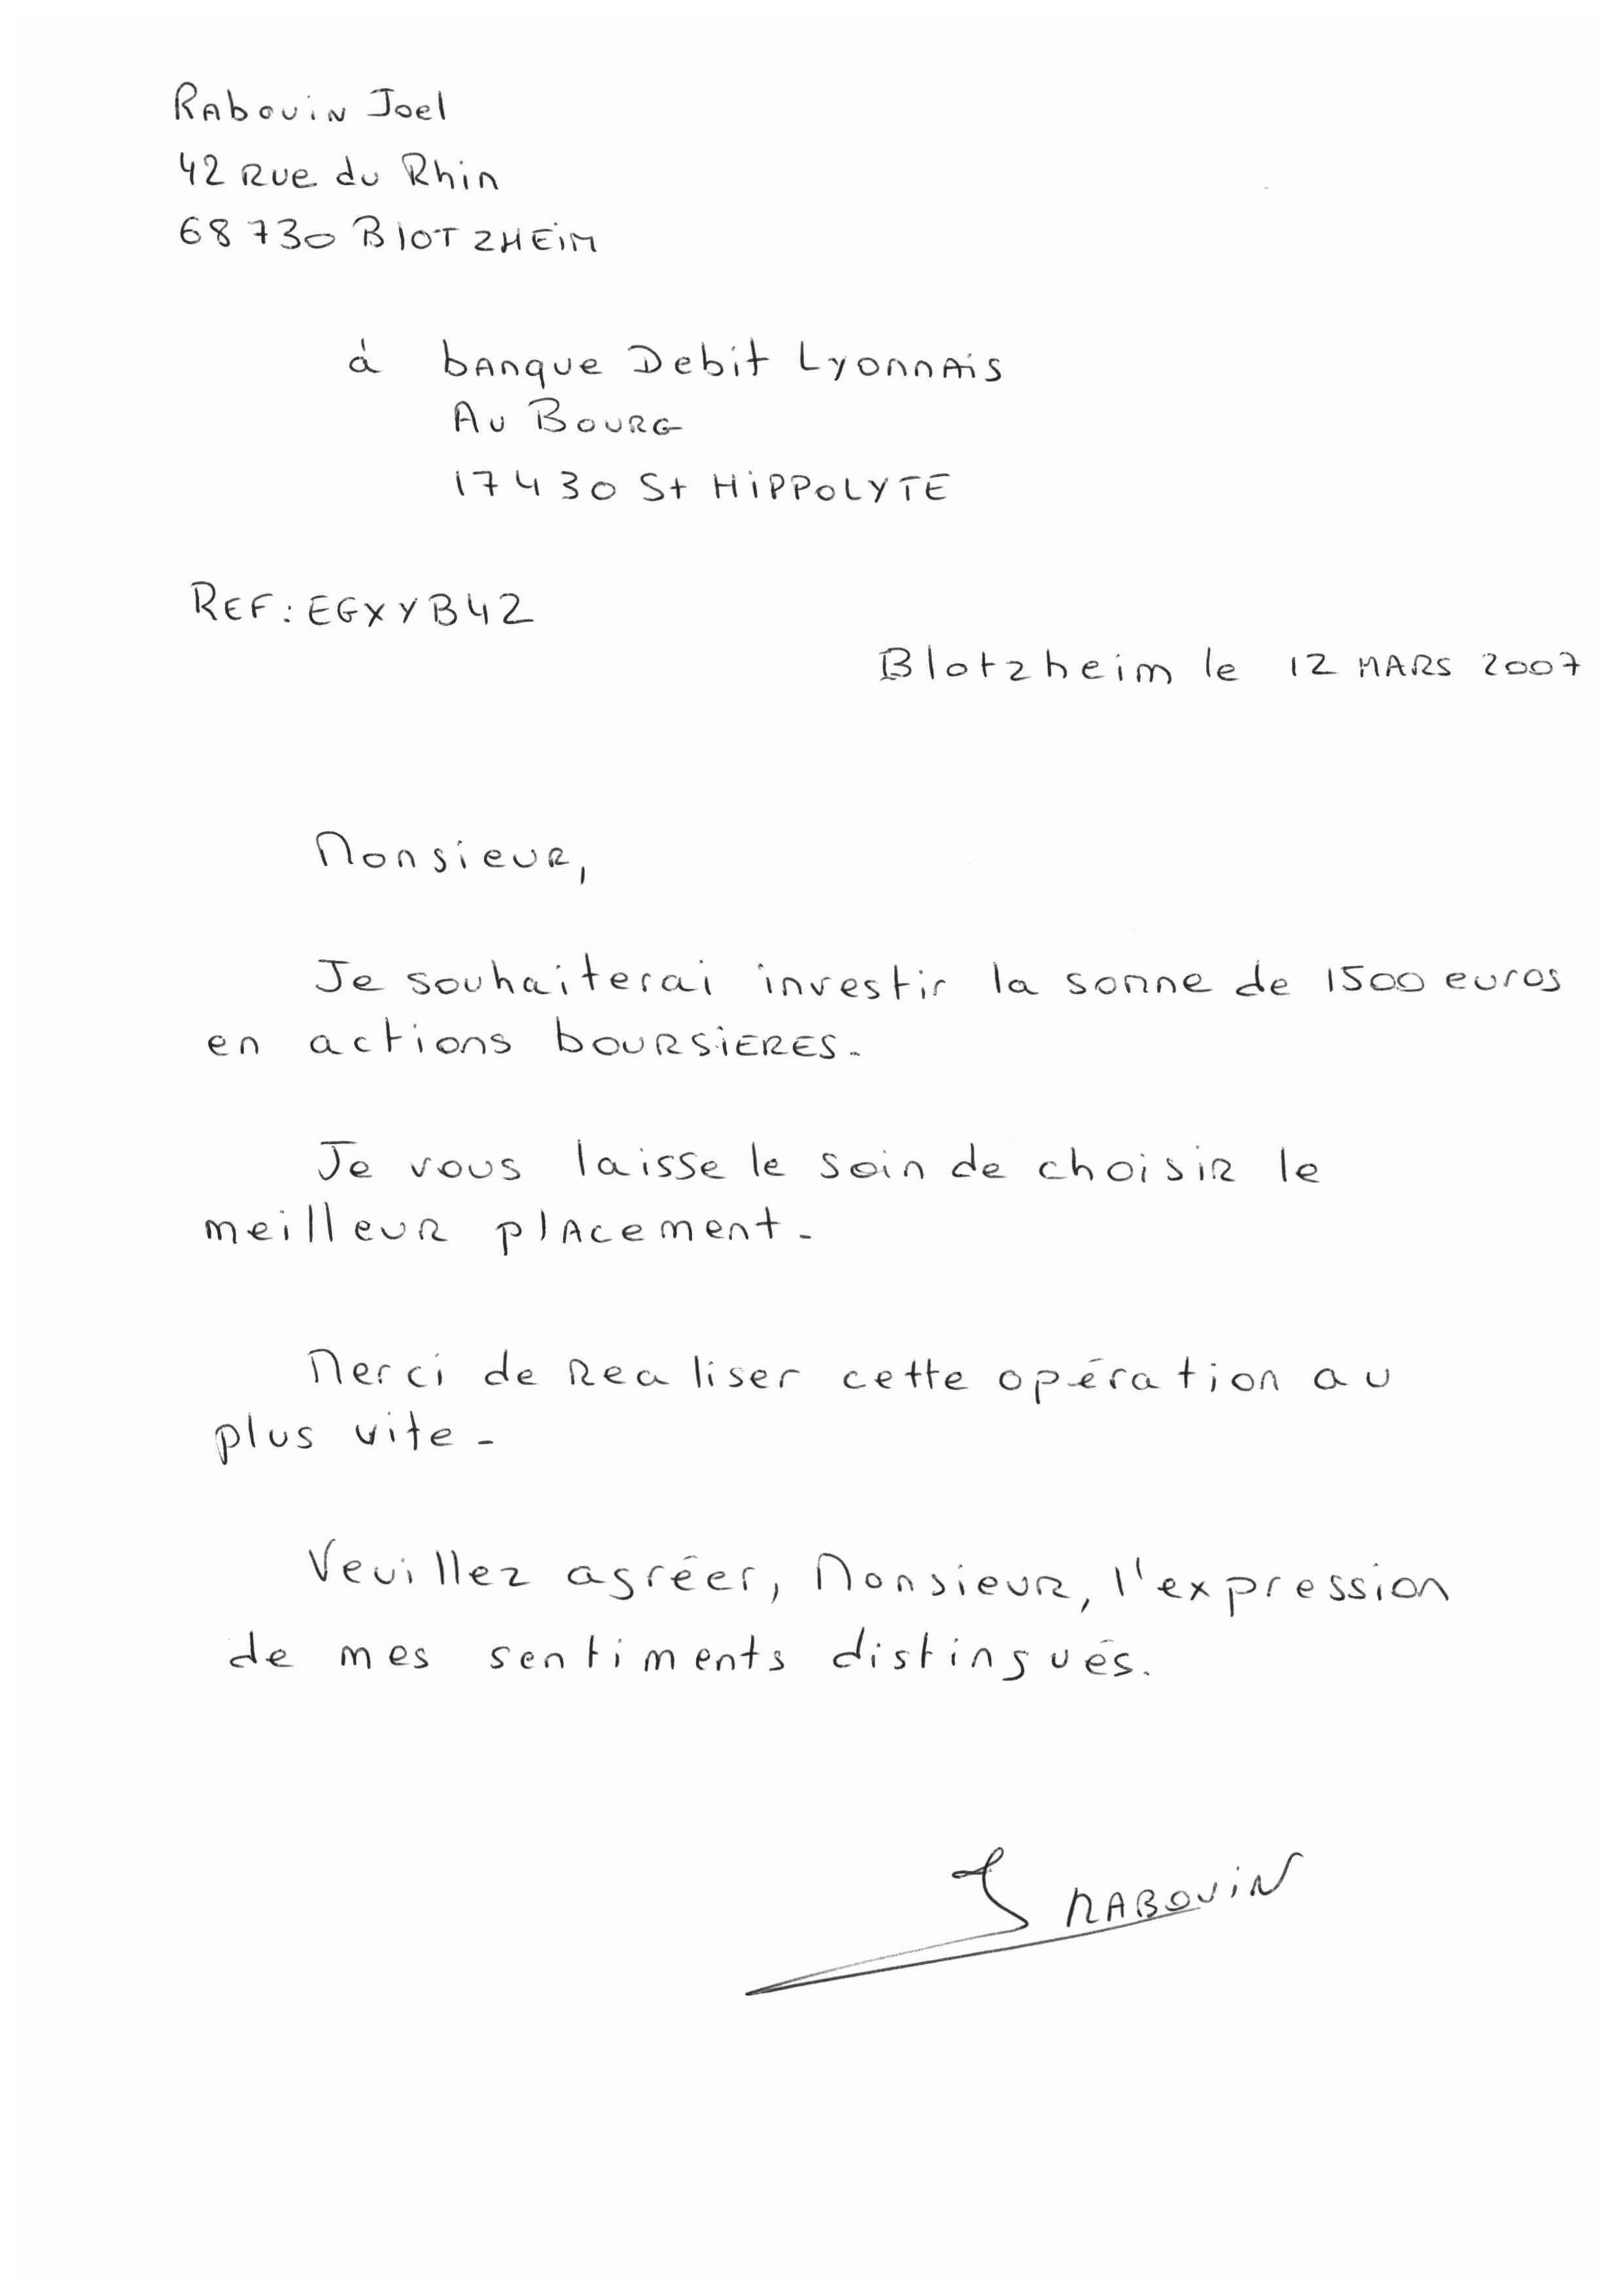 Rabouin Joel
42 Rue du Rhin
68730 BlOTZHEIM
à banque Debit Lyonnais
Au Bourg
17430 St HIPPOLYTE
REF: EGXYB42
Blotzheim le 12 MARS 2007
Monsieur,
Je souhaiterai investir la somme de 1500 euros
en actions boursieres.
Je vous laisse le soin de choisir le
meilleur placement.
Merci de realiser cette opération au
plus vite.
Veuillez agréer, Monsieur, l'expression
de mes sentiments distingués.
J RABOUIN